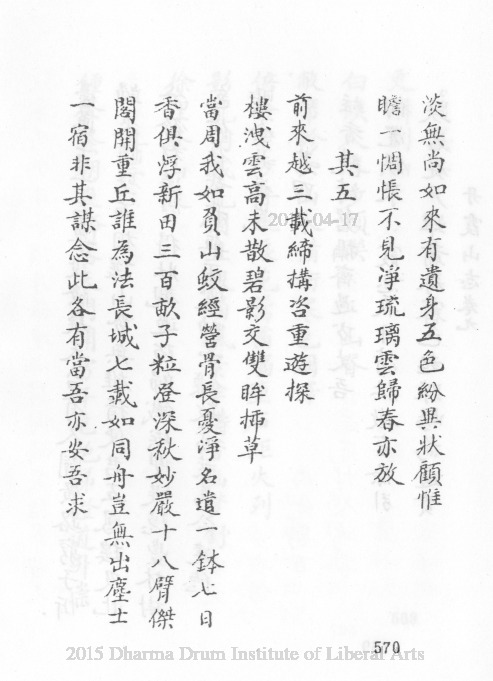 淡無尚如來有遺身五色紛異狀顧惟
瞻一惆悵不見淨琉璃雲歸春亦放
其五
前來越三載締搆咨重遊探
樓洩雲高未散碧影交雙眸插草
當周我如負山蚊經營骨長憂淨名遺一鉢七日
香俱浮新田三百畝子粒登深秋妙嚴十八臂傑
閣開重丘誰為法長城七載如同舟豈無出塵士
一宿非其謀念此各有當吾亦安吾求
570
2015-04-17
2015 Dharma Drum Institute of Liberal Arts